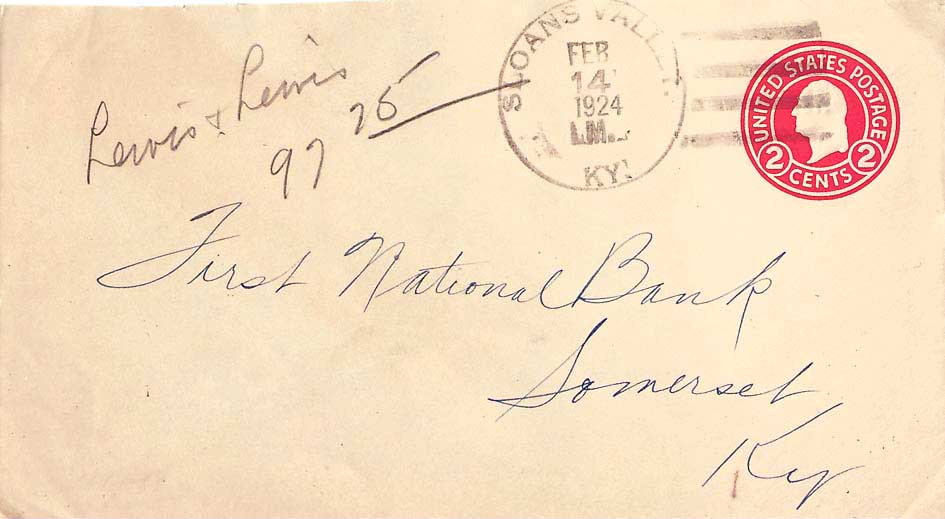 Lewis & Lewis
97 75
SLOANS VALLEY.
FEB
14
1924
KY.
UNITED STATES POSTAGE
2 CENTS 2
First National Bank
Somerset
Ky